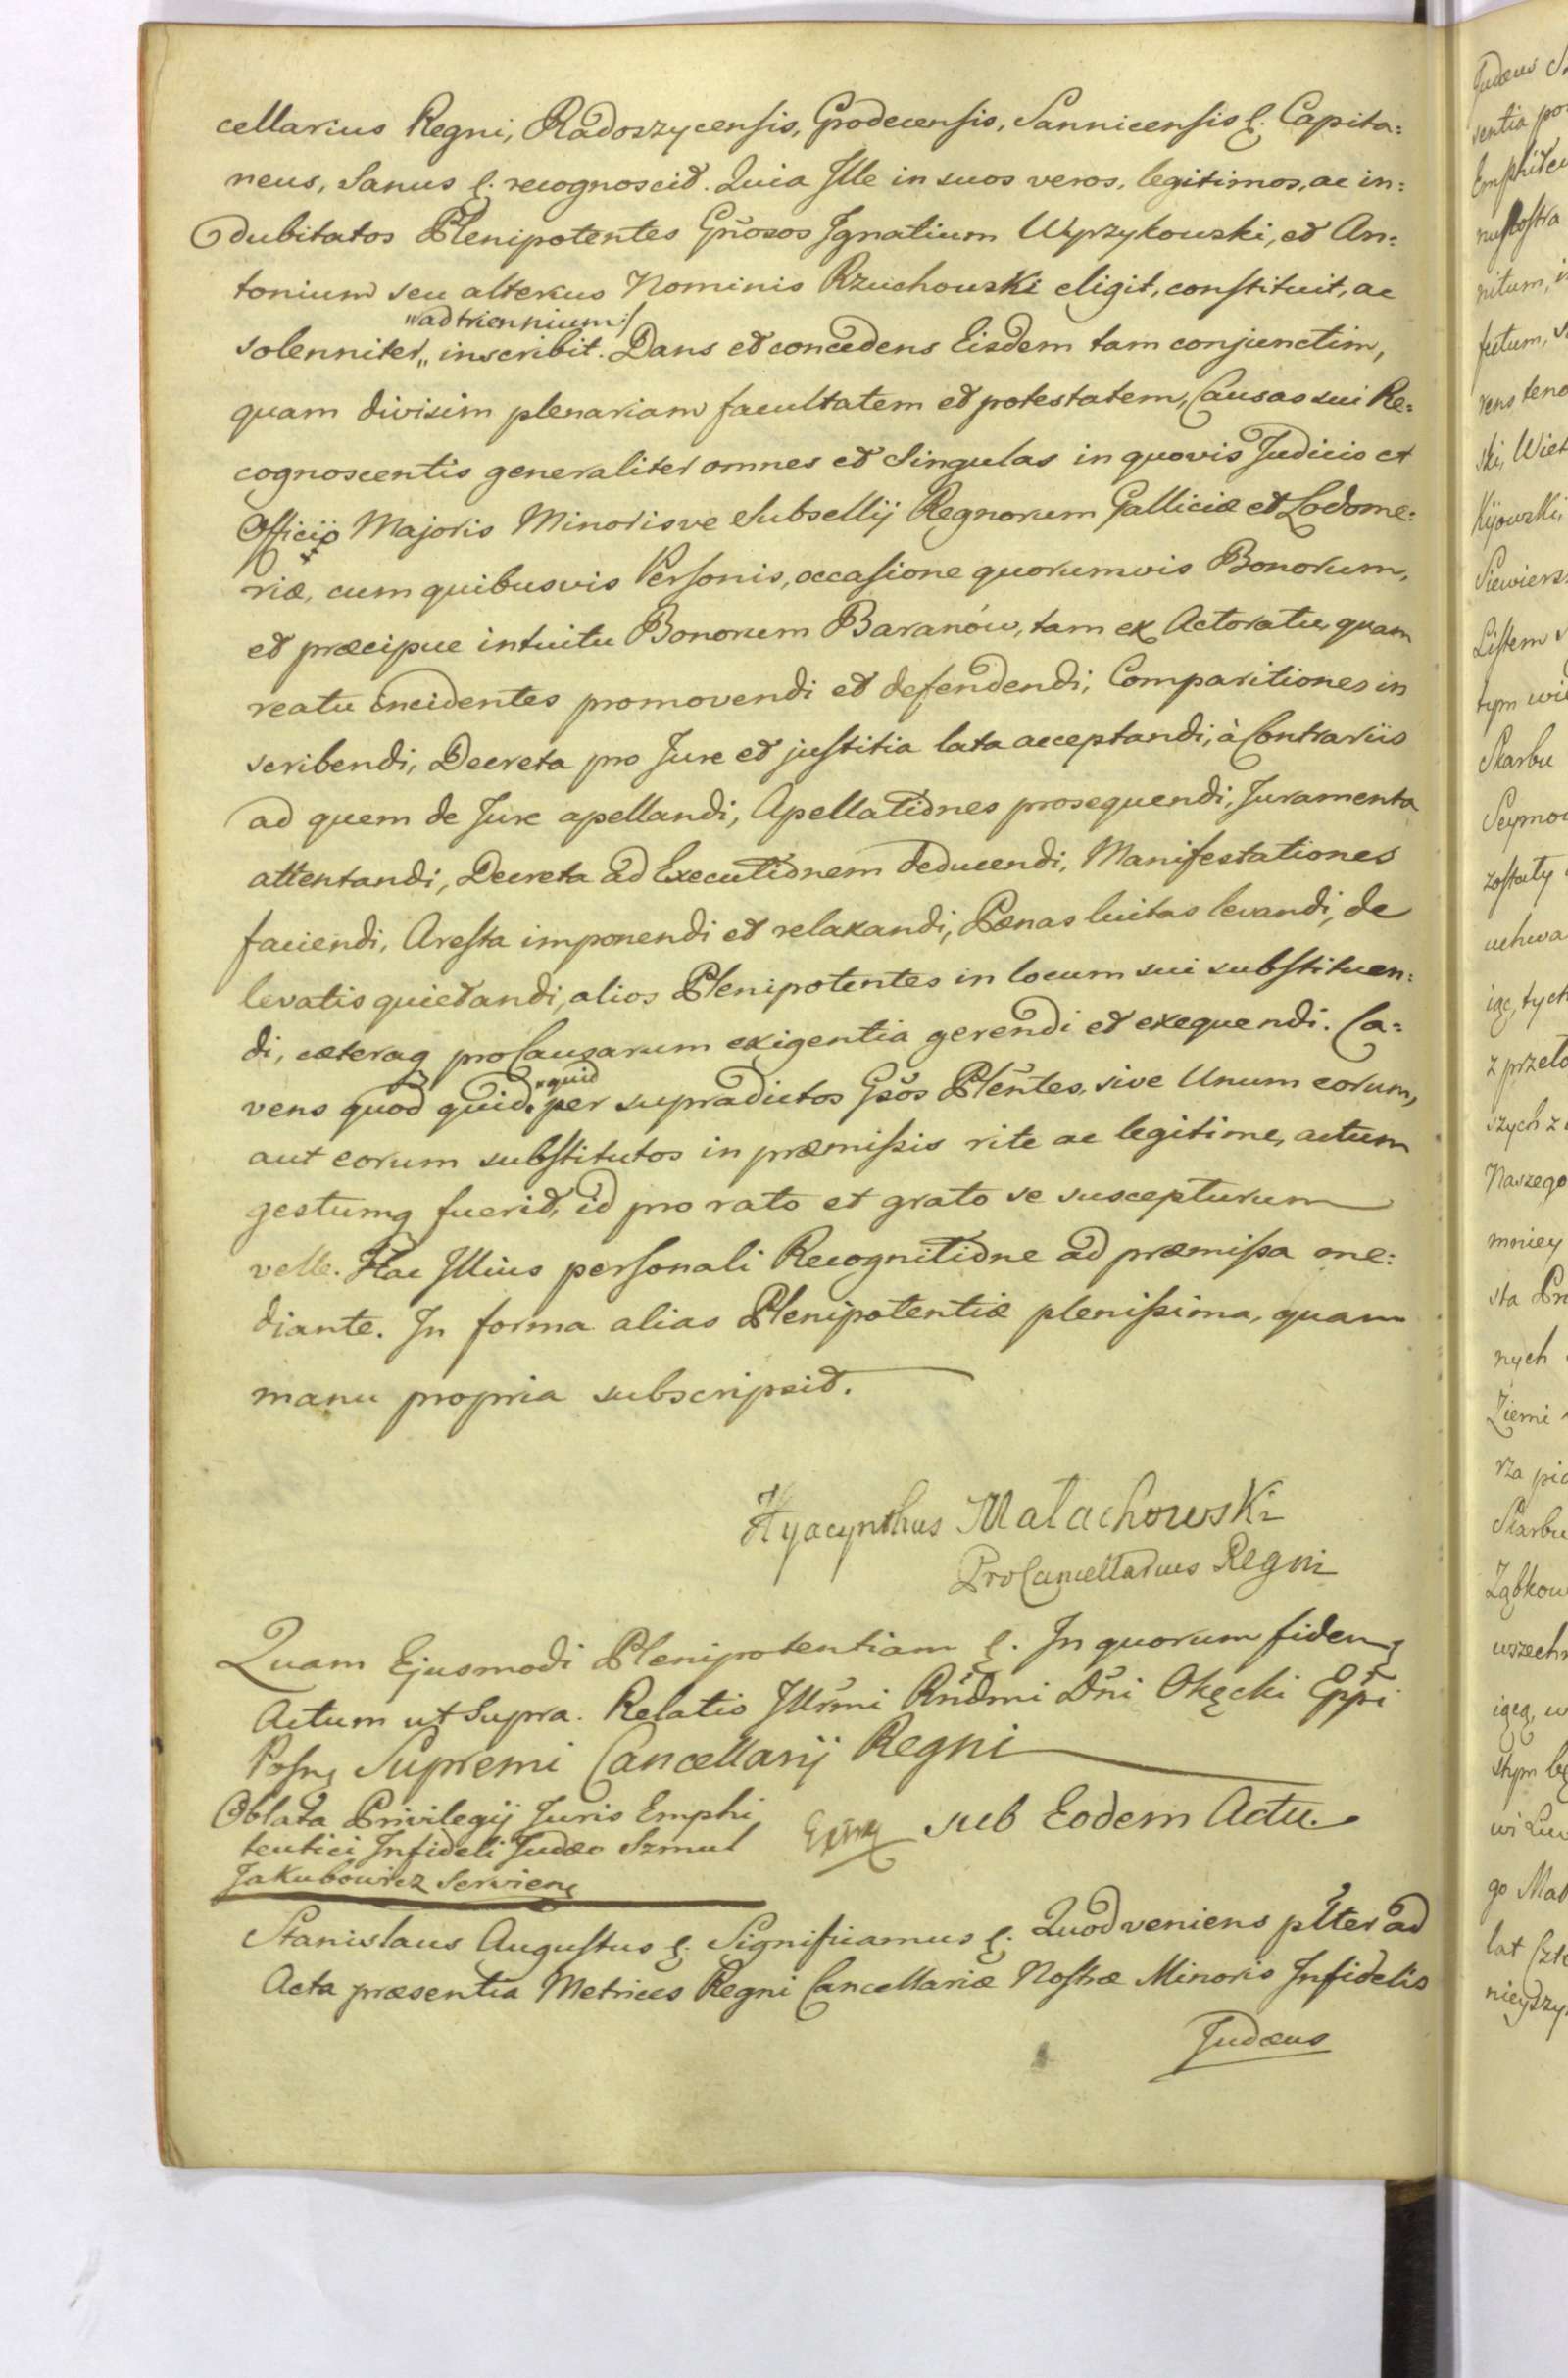 cellarius Regni, Radoszycensis, Grodecensis, Sannicensis &. Capita=
neus, Sanus &. recognoscit. Quia Ille in suos veros, legitimos, ac in=
dubitatos Plenipotentes Gñosos Ignatium Wyrzykowski, et An=
tonium seu alterius Nominis Rzuchowski eligit, constituit, ac
"ad triennium:/
solenniter,, inscribit. Dans et concedens Eisdem tam conjunctim,
quam divisim plenariam facultatem et potestatem, Causas sui Re=
cognoscentis generaliter omnes et Singulas in quovis Judicio et
Officijo Majoris Minorisve Subsellij Regnorum Galliciæ et Lodome=
riæ, cum quibusvis Personis, occasione quorumvis Bonorum,
et præcipue intuitu Bonorum Baranów, tam ex Actoratu, quam
reatu incidentes promovendi et defendendi, Comparitiones in
scribendi, Decreta pro Jure et justitia lata acceptandi, à Contrariis
ad quem de Jure apellandi, Apellationes prosequendi, Juramenta
attentandi, Decreta ad Executionem deducendi, Manifestationes
faciendi, Aresta imponendi et relaxandi, Pænas luitas levandi, de
levatis quietandi, alios Plenipotentes in locum sui substituen=
di, cæteraq pro Causarum exigentia gerendi et exequendi. Ca=
"quid
vens quod quid" per supradictos Gsõs Plẽntes, sive Unum eorum,
aut eorum substitutos in præmissis rite ac legitime, actum
gestumq fuerit, id pro rato et grato se suscepturum
velle. Hac Illius personali Recognitione ad præmissa me=
diante. In forma alias Plenipotentiæ plenissima, quam
manu propria subscripsit.
Hyacynthus Małachowski
ProCancellarius Regni
Quam Ejusmodi Plenipotentiam &. In quorum fidem &
Actum ut Supra. Relatio Illr̃mi Rñdmi Dñi Okęcki Epp̃i
Posn Supremi Cancellarij Regni
Oblata Privilegij Juris Emphi
teutici Infideli Judæo Szmul
Jakubowicz Serviens
sub Eodem Actu.
Stanislaus Augustus &. Significamus &. Quod veniens pl̃ter ad
Acta præsentia Metrices Regni Cancellariæ Nostræ Minoris Infidelis
Judæus
Judæus
sentia
nitum,
ski, Wiel
Kijowski,
Listem
tym
Skarbu
zostały
uchwa
z przeło
szych z
Naszego
mniey
sta
nych
Ziemi
rza
Skarbu
Ząbkow
wszech
go Mał
lat